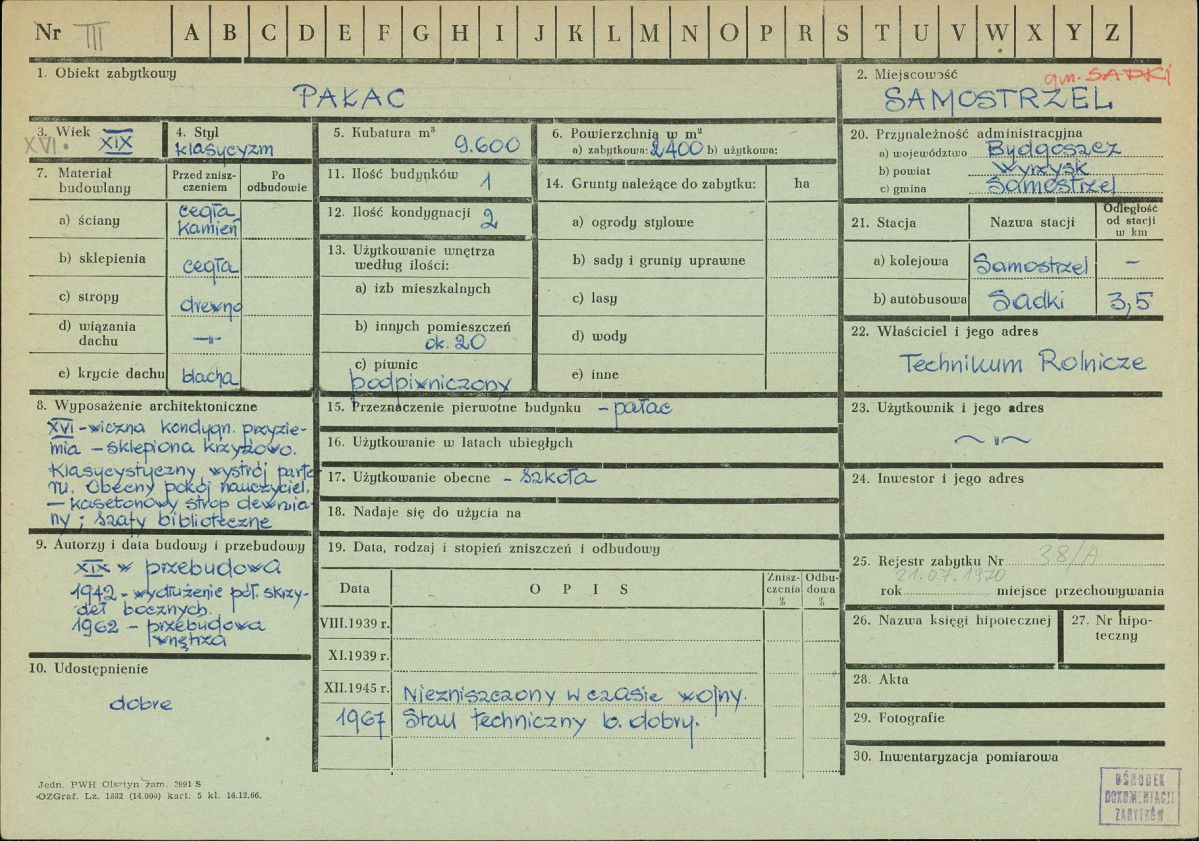 Nr III A B C D E F G H I J K L M N O P R S T U V W X Y Z
1. Obiekt zabytkowy
PAŁAC
2. Miejscowość
gm. SADKI
SAMOSTRZEL
3. Wiek
XVI. XIX
4. Styl
klasycyzm
5. Kubatura m³
9.600
6. Powierzchnia w m²
a) zabytkowa: 2400 b) użytkowa:
20. Przynależność administracyjna
a) województwo Bydgoszcz
b) powiat Wyrzysk
c) gmina Samostrzel
7. Materiał budowlany
Przed zniszczeniem
Po odbudowie
a) ściany
cegła
kamień
b) sklepienia
cegła
c) stropy
drewno
d) wiązania
dachu
—"—
e) krycie dachu
blacha
11. Ilość budynków
1
12. Ilość kondygnacji
2
13. Użytkowanie wnętrza
według ilości:
a) izb mieszkalnych
b) innych pomieszczeń
ok. 20
c) piwnic
podpiwniczony
14. Grunty należące do zabytku:
ha
a) ogrody stylowe
b) sady i grunty uprawne
c) lasy
d) wody
e) inne
21. Stacja
Nazwa stacji
Odległość
od stacji
w km
a) kolejowa Samostrzel —
b) autobusowa Sadki 3,5
22. Właściciel i jego adres
Technikum Rolnicze
8. Wyposażenie architektoniczne
XVI-wiczna kondygn. przyzie-
mia – sklepiona krzyżowo.
Klasycystyczny wystrój parte-
ru. Obecny pokój nauczyciel.
– kasetonowy strop drewnia-
ny; szafy biblioteczne
15. Przeznaczenie pierwotne budynku – pałac
16. Użytkowanie w latach ubiegłych
17. Użytkowanie obecne – szkoła
18. Nadaje się do użycia na
23. Użytkownik i jego adres
~ "~
24. Inwestor i jego adres
9. Autorzy i data budowy i przebudowy
XIX w przebudowa
1942 – wydłużenie płd. skrzy-
deł bocznych.
1962 – przebudowa
wnętrza
10. Udostępnienie
dobre
19. Data, rodzaj i stopień zniszczeń i odbudowy
Data
O P I S
Znisz-
czenia
%
Odbu-
dowa
%
VIII.1939 r.
XI.1939 r.
XII.1945 r. Niezniszczony w czasie wojny.
1967 Stan techniczny b. dobry.
25. Rejestr zabytku Nr 38/A
21.07.1970
rok miejsce przechowywania
26. Nazwa księgi hipotecznej
27. Nr hipo-
teczny
28. Akta
29. Fotografie
30. Inwentaryzacja pomiarowa
Jedn. PWH Olsztyn zam. 2991 S
OZGraf. Lz. 1882 (14.000) kart. 5 kl. 16.12.66.
OŚRODEK
DOKUMENTACJI
ZABYTKÓW